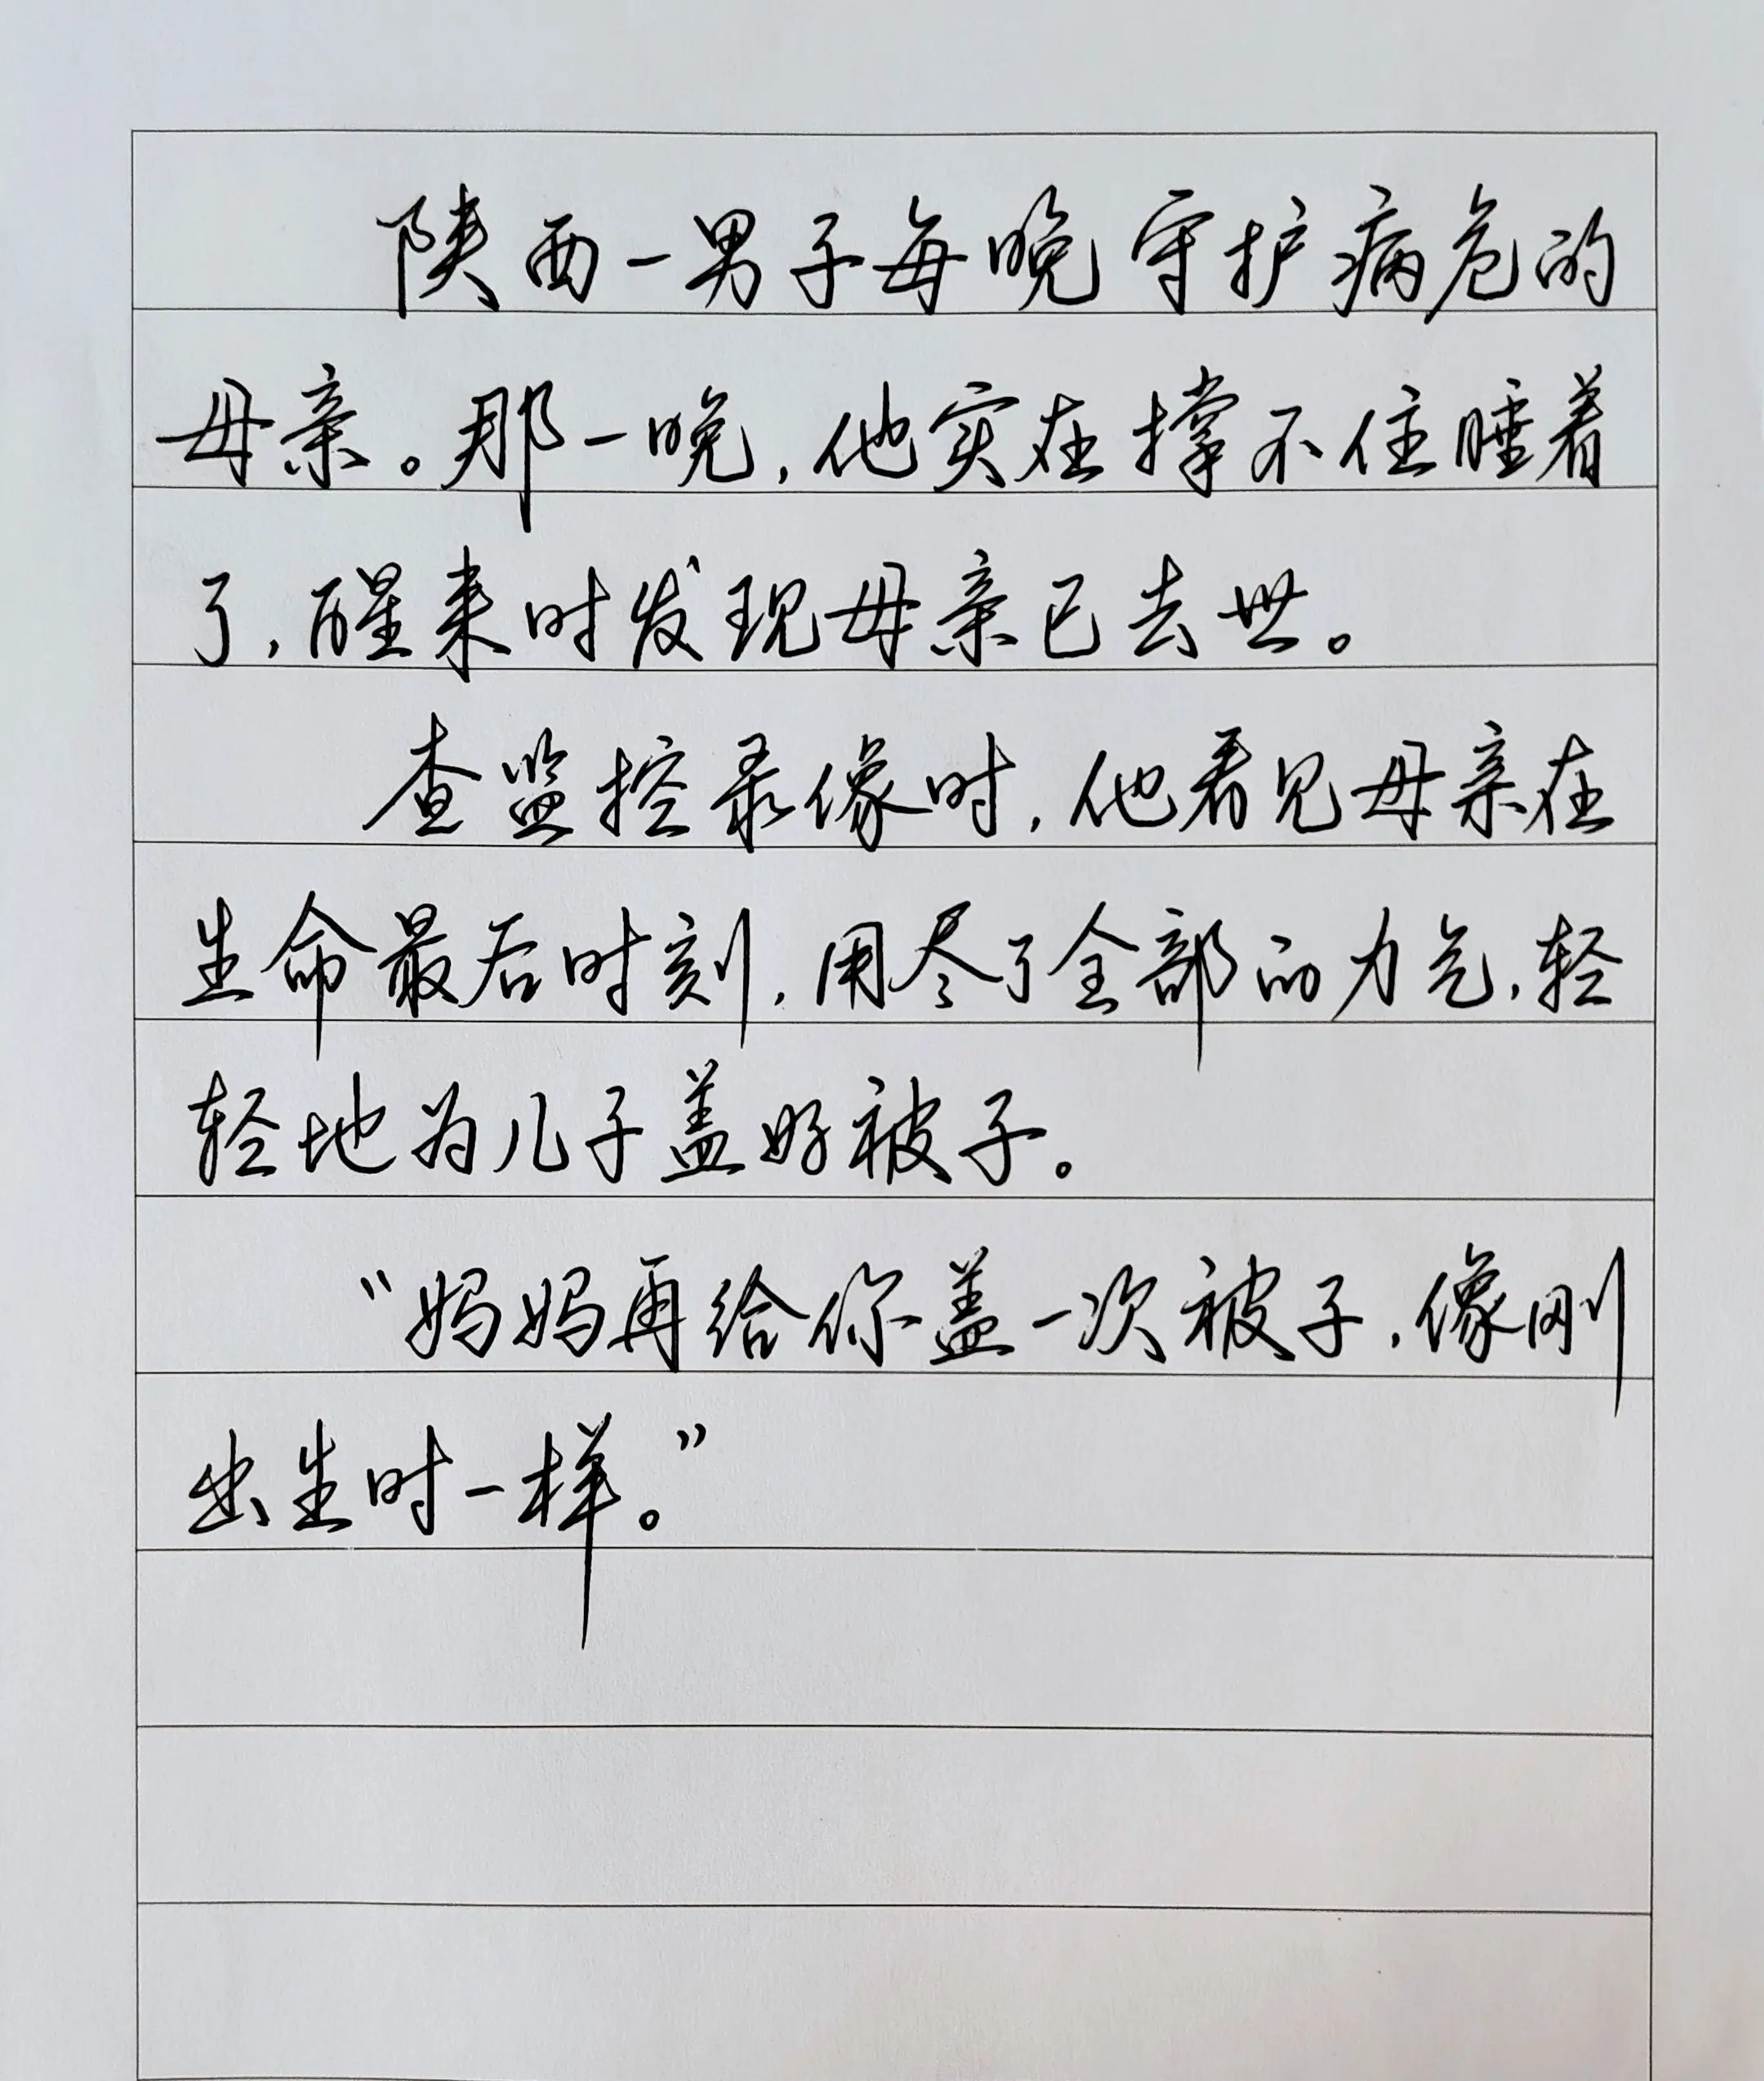 陕西一男子每晚守护病危的
母亲。那一晚,他实在撑不住睡着
了,醒来时发现母亲已去世。
查监控录像时,他看见母亲在
生命最后时刻,用尽了全部的力气,轻
轻地为儿子盖好被子。
“妈妈再给你盖一次被子,像刚
出生时一样。”